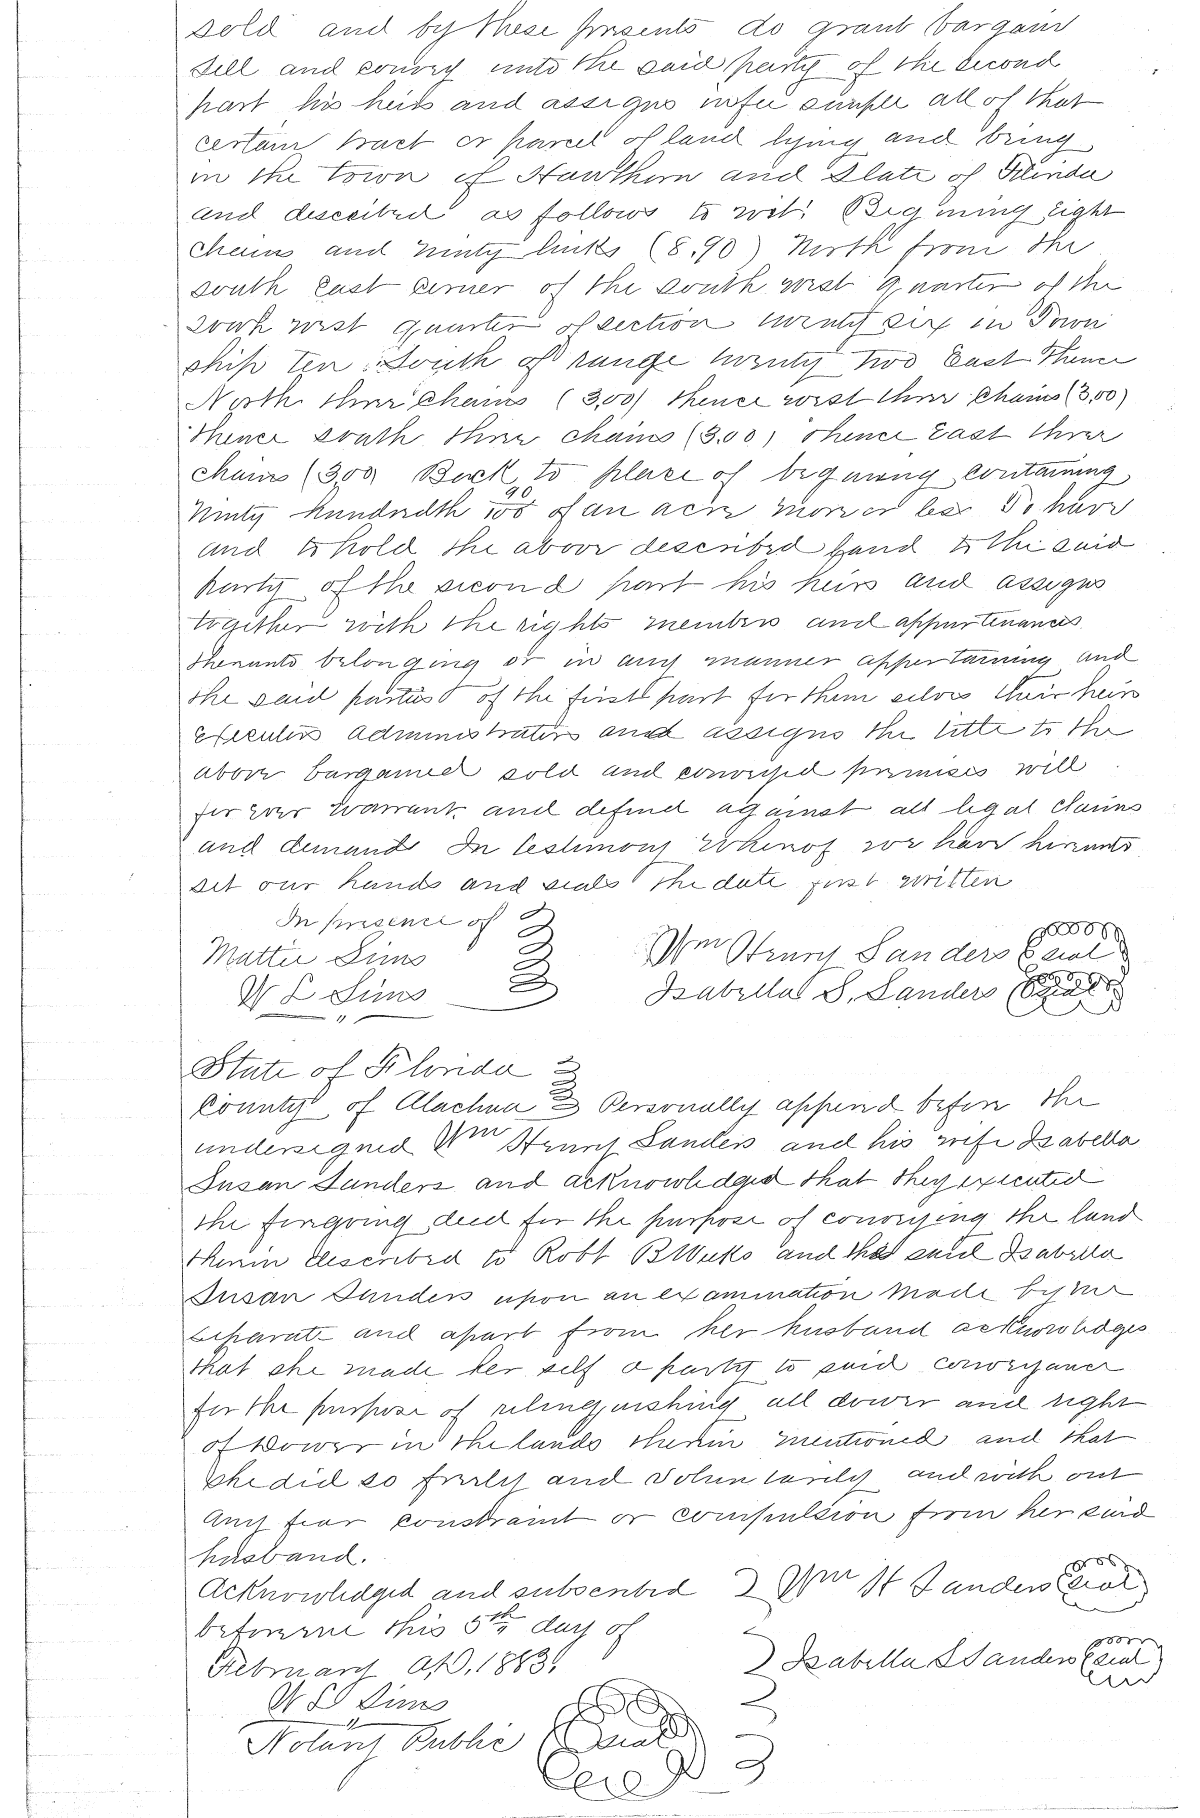 sold and by these presents do grant bargain
sell and convey unto the said party of the second
part his heirs and assigns in fee simple all of that
certain tract or parcel of land lying and being
in the town of Hawthorn and State of Florida
and described as follows to wit: Begining Eight
chains and ninty links (8.90) North from the
south East corner of the south west quarter of the
South west quarter of section twenty six in Town
ship ten South of range twenty two East Thence
North three chains (3,00) thence west three chains (3,00)
thence south three chains (3.00) thence East three
chains (3,00) Back to place of begining containing
Ninty hundredth 90/100 of an acre more or less To have
and to hold the above described land to the said
party of the second part his heirs and assigns
together with the rights members and appurtenances
thereunto belonging or in any manner appertaining and
the said parties of the first part for them selves their heirs
executors administrators and assigns the title to the
above bargained sold and conveyed premises will
for ever warrant and defend against all legal claims
and demands In testimony whereof we have hereunto
set our hands and seals the date first written
In presence of
Mattie Sims Wm Henry Sanders seal
W L Sims Isabella S. Sanders Seal
State of Florida
County of Alachua Personally appeard before the
undersigned Wm Henry Sanders and his wife Isabella
Susan Sanders and acknowledged that they executed
the forgoing deed for the purpose of conveying the land
therein described to Robt B Weeks and the said Isabella
Susan Sanders upon an examination made by me
separate and apart from her husband acknowledges
that she made her self a party to said conveyance
for the purpose of relinquishing all dower and right
of Dower in the lands therein mentioned and that
she did so freely and voluntarily and with out
any fear constraint or compulsion from her said
husband.
Acknowledged and subscribed Wm H Sanders seal
before me this 5th day of
February A.D. 1883. Isabella S Sanders seal
W L Sims
Notary Public Seal